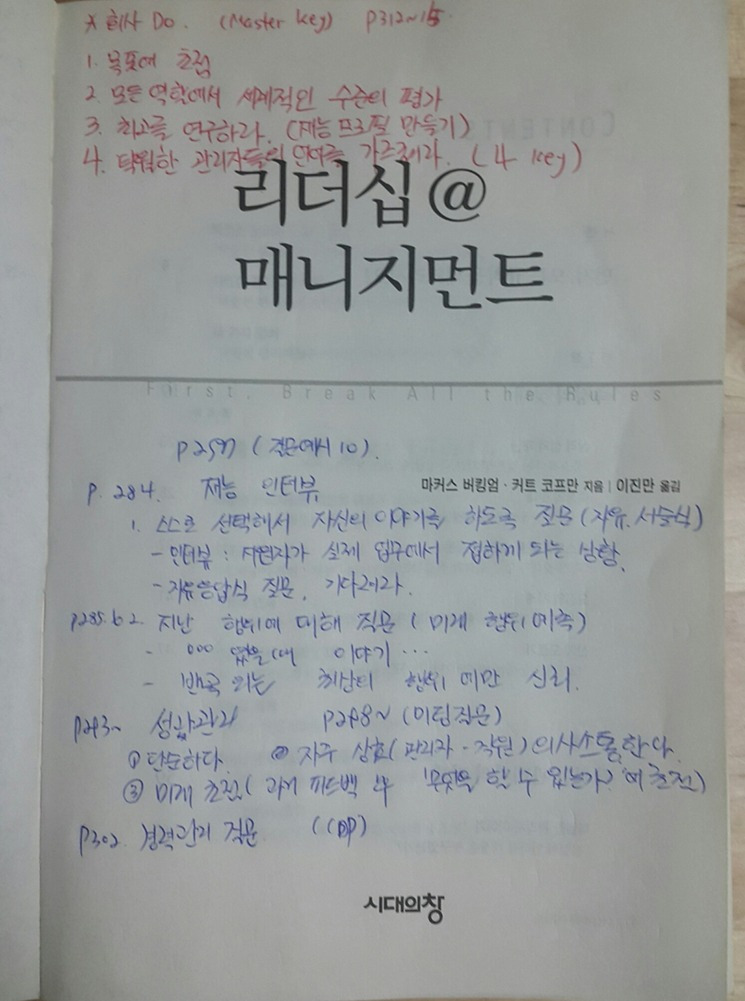 * 회사 Do. (Master key) P312~15
1. 목표에 초점
2. 모든 역할에서 세계적인 수준의 평가
3. 최고를 연구하라. (재능 프로필 만들기)
4. 탁월한 관리자들의 언어를 가르쳐라. (4 key)
리더십@
매니지먼트
First, Break All the Rules
(질문예시 10).
P. 284. 재능 인터뷰
마커스 버킹엄·커트 코프만 지음 | 이진만 옮김
1. 스스로 선택해서 자신의 이야기를 하도록 질문 (자유.서술식)
- 인터뷰 : 지원자가 실제 업무에서 접하게 되는 상황.
- 자유응답식 질문. 기다려라.
P285. 2. 지난 행위에 대해 질문 (미래 행위 예측)
- 000 했을 때 이야기 ...
- 반복 되는 최상의 행위 에만 신뢰.
P293~ 성과관리 P298~ (미팅질문)
① 단순하다. ② 자주 상호(관리자·직원) 의사소통한다.
③ 미래 초점( 과거 피드백 '무엇을 할 수 있는가?'에 초점)
P302. 경력관리 질문 (CDP)
시대의창